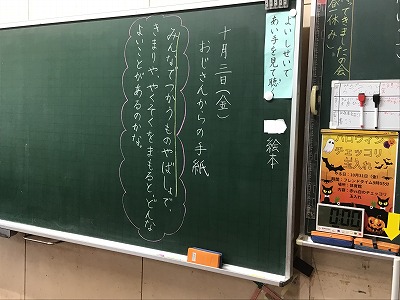 よいしせいで
あい手を見て聴く
十月三日(金)
おじさんからの手紙
絵本
みんなでつかうものやばしょで、
きまりや、やくそくをまもると、どんな
よいことがあるのかな。
できましたの会
昼休み
ハロウィン
チェッコリ
玉入れ